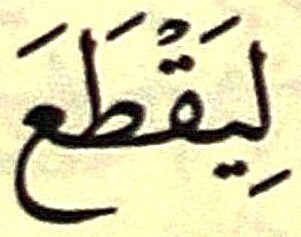 لِيَقْطَعَ